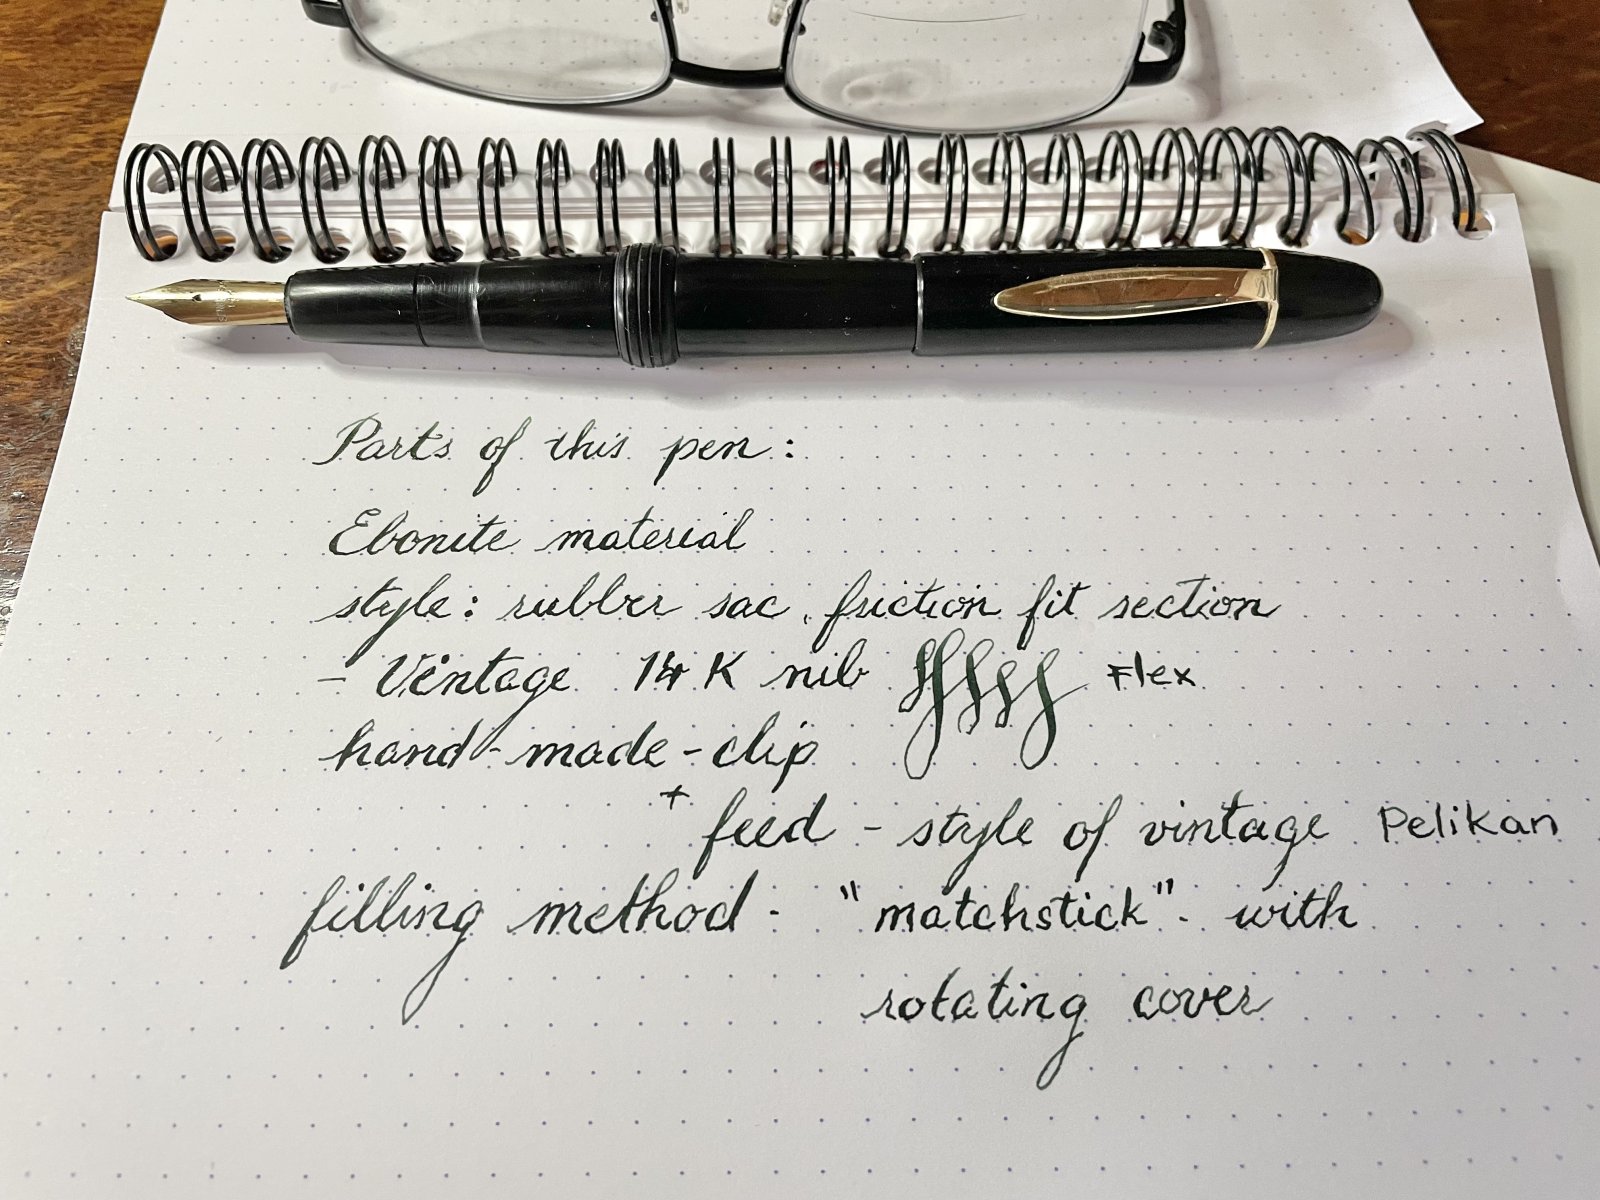 Parts of this pen:
Ebonite material
style: rubber sac, friction fit section
- Vintage 14K nib Flex
hand-made-clip
+ feed - style of vintage Pelikan
filling method - "matchstick" - with
rotating cover